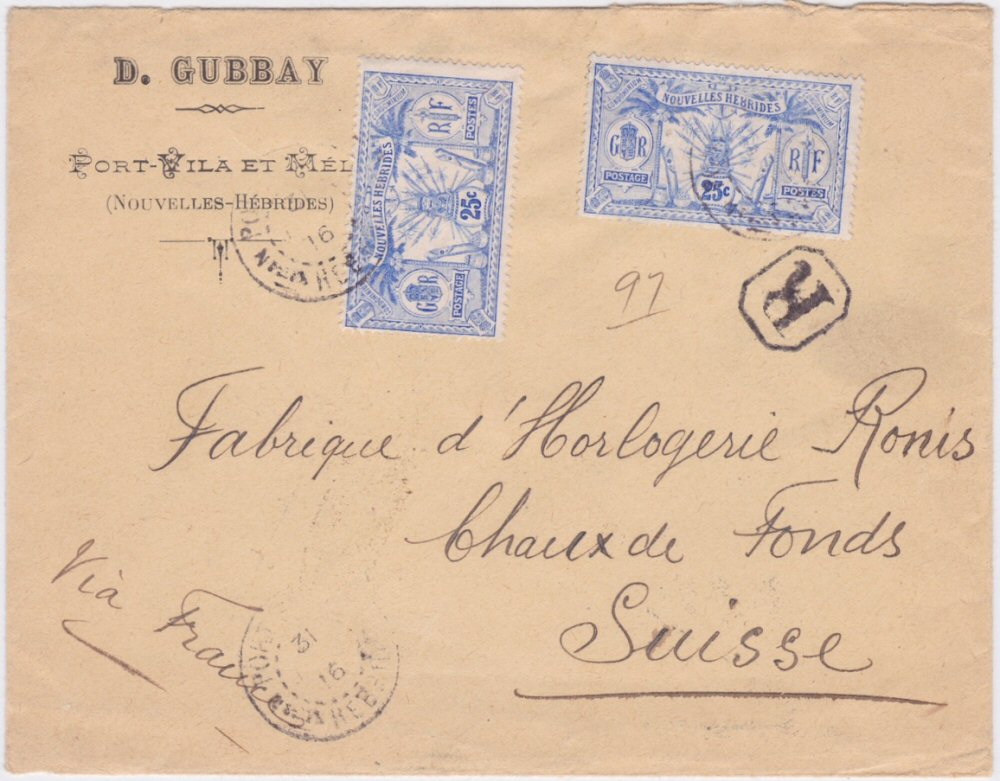 D. GUBBAY
PORT-VILA ET MÉL
(NOUVELLES-HÉBRIDES)
NOUVELLES HÉBRIDES
CONDOMINIUM
GR
POSTAGE
25c
RF
POSTES
NOUVELLES HÉBRIDES
CONDOMINIUM
GR
POSTAGE
25c
RF
POSTES
16
R
97
Fabrique d'Horlogerie Ronis
Chaux de Fonds
Suisse
Vià France
PORT
31
16
HEBRI